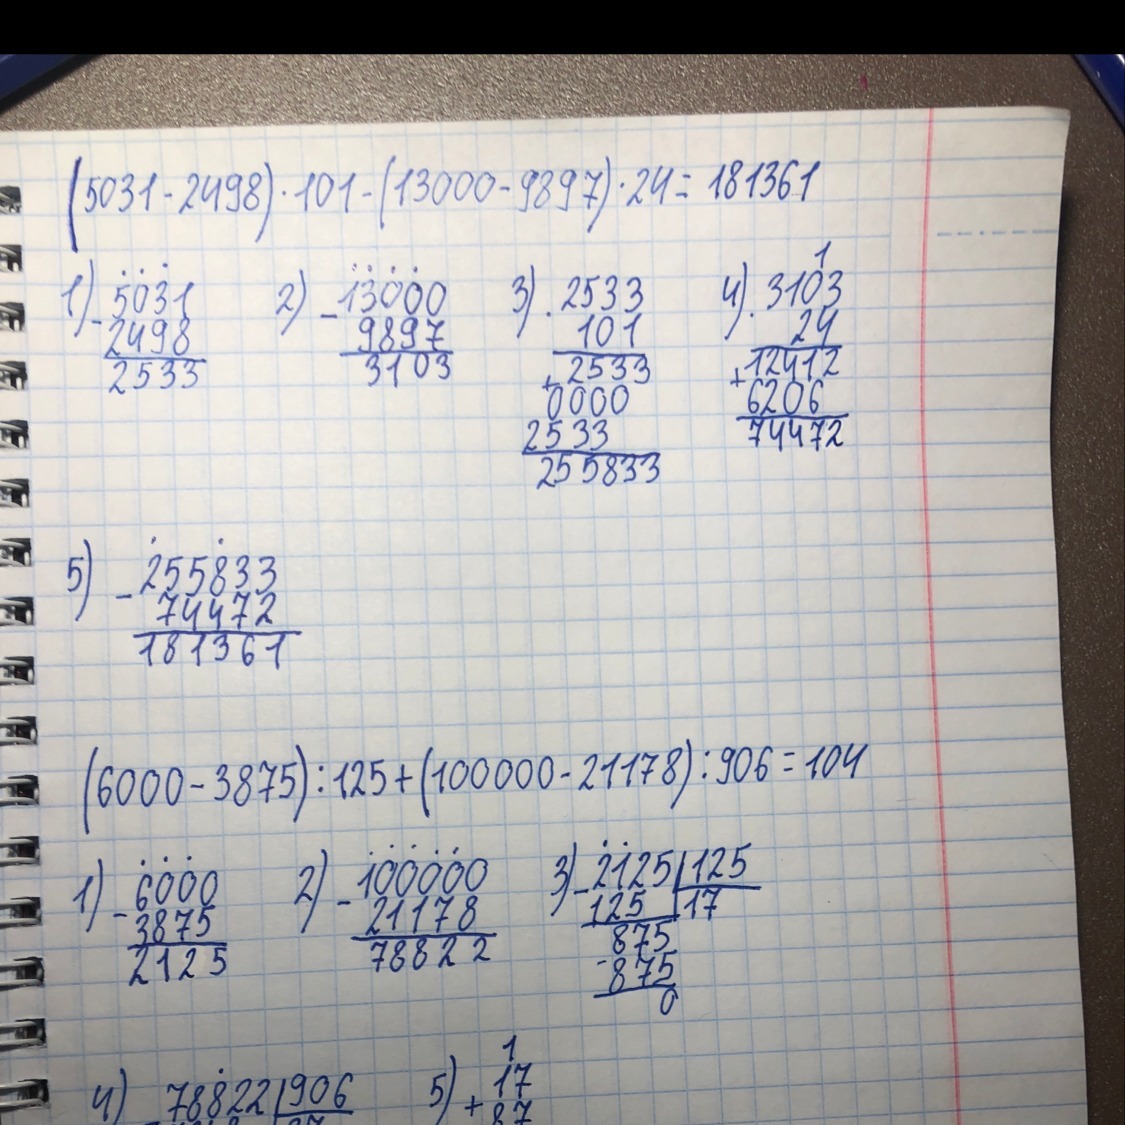 (5031-2498)·101-(13000-9897)·24=181361
1) -5031
2498
2533
2) -13000
9897
3103
3) ·2533
101
+2533
0000
2533
255833
4) ·3103
1
24
+12412
6206
74472
5) -255833
74472
181361
(6000-3875):125+(100000-21178):906=104
1) -6000
3875
2125
2) -100000
21178
78822
3) -2125|125
125 |17
-875
875
0
4) 78822|906
5) 1
+17
87